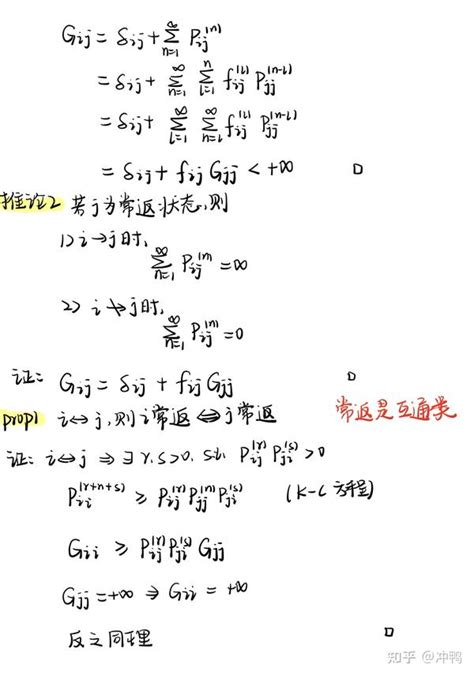 Gij = δij + ∑_{n=1}^{∞} Pij^{(n)}
= δij + ∑_{n=1}^{∞} ∑_{l=1}^{n} fij^{(l)} Pjj^{(n-l)}
= δij + ∑_{l=1}^{∞} ∑_{n=l}^{∞} fij^{(l)} Pjj^{(n-l)}
= δij + fij Gjj < +∞ □
推论2 若j为常返状态,则
1) i→j时,
∑_{n=1}^{∞} Pij^{(n)} = ∞
2) i↛j时,
∑_{n=1}^{∞} Pij^{(n)} = 0
证: Gij = δij + fij Gjj □
prop1 i↔j,则i常返⇔j常返 常返是互通类
证: i↔j ⇒ ∃ r,s>0, s.t. Pij^{(r)} Pji^{(s)} > 0
Pii^{(r+n+s)} ≥ Pij^{(r)} Pjj^{(n)} Pji^{(s)} (K-C方程)
Gii ≥ Pij^{(r)} Pji^{(s)} Gjj
Gjj = +∞ ⇒ Gii = +∞
反之同理 □
知乎 @冲鸭